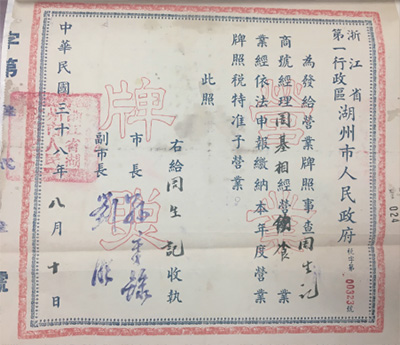 浙江省
第一行政區
湖州市人民政府
牌字第00323號
為發給營業牌照事查周生記
商號經理周基相經營飲食業
業經依法申報繳納本年度營業
牌照稅特准予營業
此照
右給周生記收執
市長
副市長
中華民國三十八年八月十日
營業
牌照
字第
號
024